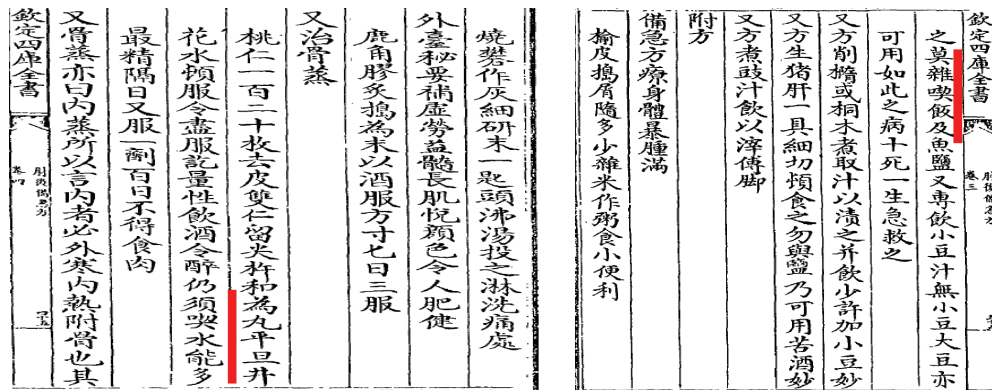 欽定四庫全書
肘後備急方
卷三
之莫雜喫飯及魚鹽又專飲小豆汁無小豆大豆亦
可用如此之病十死一生急救之
又方削楮或桐木煮取汁以漬之并飲少許加小豆妙
又方生猪肝一具細切頓食之勿與鹽乃可用苦酒妙
又方煮豉汁飲以滓傅脚
附方
備急方療身體暴腫滿
榆皮搗屑隨多少雜米作粥食小便利
燒礬作灰細研末一匙頭沸湯投之淋洗痛處
外臺秘要補虛勞益髓長肌悅顏色令人肥健
鹿角膠炙搗為末以酒服方寸匕日三服
又治骨蒸
桃仁一百二十枚去皮雙仁留尖杵和為丸平旦井
花水頓服令盡服訖量性飲酒令醉仍須喫水能多
最精隔日又服一劑百日不得食肉
又骨蒸亦曰內蒸所以言內者必外寒內熱附骨也其
欽定四庫全書
肘後備急方
卷四